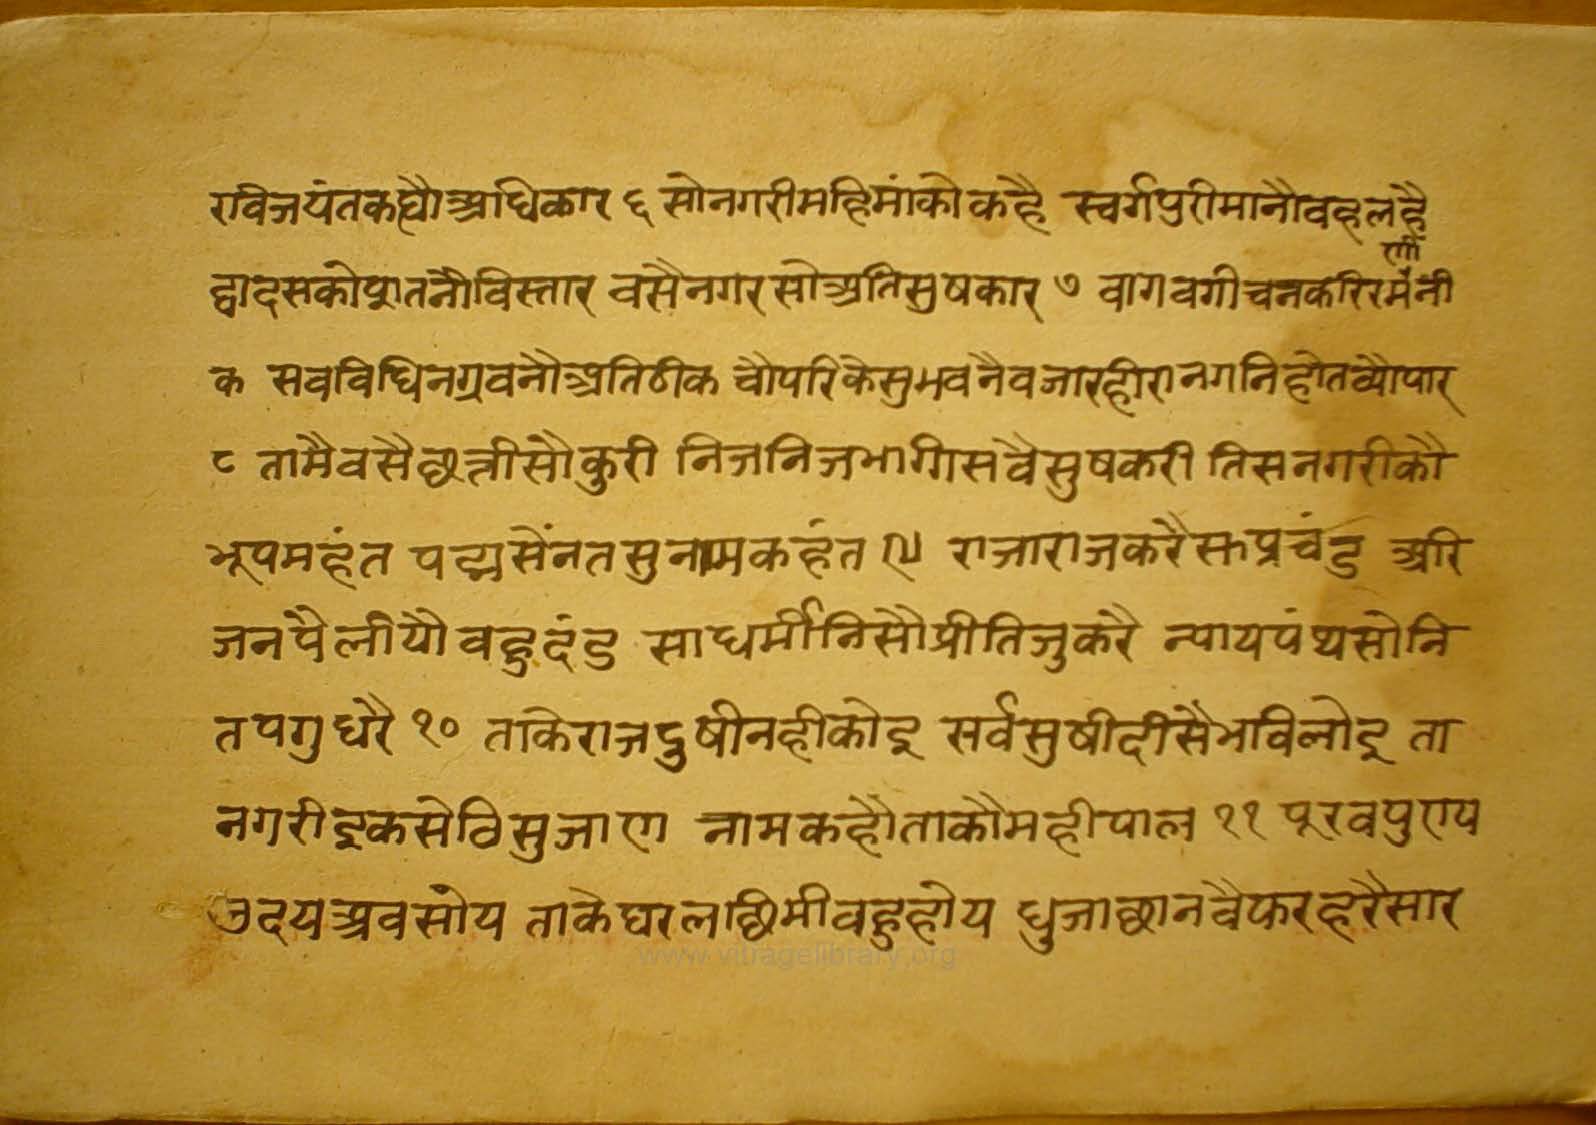 रविजयंतकह्यौअधिकार ६ सोनगरीमहिमांकोकहै स्वर्गपुरीमानौवहलहै
णी
द्वादसकोपुरातनौविस्तार वसैनगरसोअतिसुषकार ७ वागवगीचनकरिरमनी
क सवविधिनग्रवनौअतिठीक चौपरिकेसुभवनैवजारहीरानगनिहोतव्यौपार
८ तामैवसैछत्तीसौकुरी निजनिजभागीसवैसुषकरी तिसनगरीकौ
भूपमहंत पद्मसेंनतसुनामकहंत ९ राजाराजकरै प्रचंड अरि
जनपैलीयौवहुदंड साधर्मीनिसौप्रीतिजुकरै न्यायपंथसोनि
तपगुधरै १० ताकेराजदुषीनहीकोइ सर्वसुषीदीसैभाविलोइ ता
नगरीइकसेठिसुजाण नामकहौताकौमहीपाल ११ पूरवपुण्य
उदयअवसोय ताकेघरलछिमीवहुहोय धुजाछानवैफरहरैसार
www.vitragelibrary.org